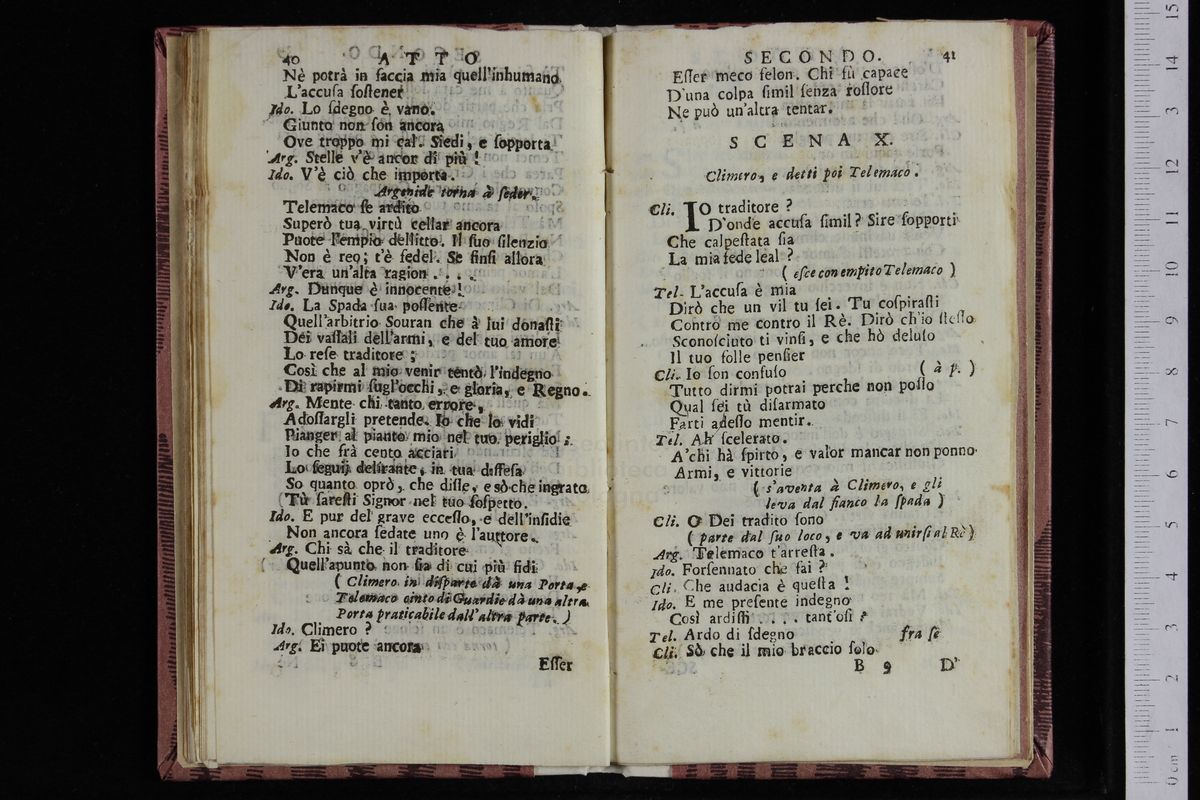 40 ATTO
Nè potrà in faccia mia quell'inhumano
L'accuſa ſoſtener
Ido. Lo ſdegno è vano.
Giunto non ſon ancora
Ove troppo mi cal. Siedi, e ſopporta
Arg. Stelle v'è ancor di più !
Ido. V'è ciò che importa.
Argenide torna à ſeder.
Telemaco ſe ardito
Superò tua virtù cellar ancora
Puote l'empio dellitto. Il ſuo ſilenzio
Non è reo; t'è fedel. Se finſi allora
V'era un'alta ragion . . . .
Arg. Dunque è innocente !
Ido. La Spada ſua poſſente
Quell'arbitrio Souran che à lui donaſti
Dei vaſſali dell'armi, e del tuo amore
Lo reſe traditore ;
Così che al mio venir tentò l'indegno
Di rapirmi ſugl'occhi, e gloria, e Regno.
Arg. Mente chi tanto errore,
Adoſſargli pretende. Io che lo vidi
Pianger al pianto mio nel tuo periglio ;
Io che frà cento acciari
Lo ſeguij delirante, in tua diffeſa
So quanto oprò, che diſſe, e sò che ingrato
Tù ſareſti Signor nel tuo ſoſpetto.
Ido. E pur del grave ecceſſo, e dell'inſidie
Non ancora ſedate uno è l'auttore.
Arg. Chi sà che il traditore
Quell'apunto non ſia di cui più fidi
( Climero in diſparte dà una Porta, e
Telemaco cinto di Guardie dà una altra
Porta praticabile dall'altra parte. )
Ido. Climero ?
Arg. Ei puote ancora
Eſſer
SECONDO. 41
Eſſer meco felon. Chi fù capace
D'una colpa ſimil ſenza roſſore
Ne può un'altra tentar.
SCENA X.
Climero, e detti poi Telemaco.
Cli. IO traditore ?
D'onde accuſa ſimil? Sire ſopporti
Che calpeſtata ſia
La mia fede leal ?
( eſce con empito Telemaco )
Tel. L'accuſa è mia
Dirò che un vil tu ſei. Tu coſpiraſti
Contro me contro il Rè. Dirò ch'io ſteſſo
Sconoſciuto ti vinſi, e che hò deluſo
Il tuo folle penſier
Cli. Io ſon confuſo ( à p. )
Tutto dirmi potrai perche non poſſo
Qual ſei tù diſarmato
Farti adeſſo mentir.
Tel. Ah ſcelerato.
A'chi hà ſpirto, e valor mancar non ponno
Armi, e vittorie
( s'aventa à Climero, e gli
leva dal fianco la ſpada )
Cli. O Dei tradito ſono
( parte dal ſuo loco, e va ad unirſi al Rè )
Arg. Telemaco t'arreſta.
Ido. Forſennato che fai ?
Cli. Che audacia è queſta !
Ido. E me preſente indegno
Così ardiſti . . . . tant'oſi ?
Tel. Ardo di ſdegno fra ſè
Cli. Sò che il mio braccio ſolo
B 9 D'